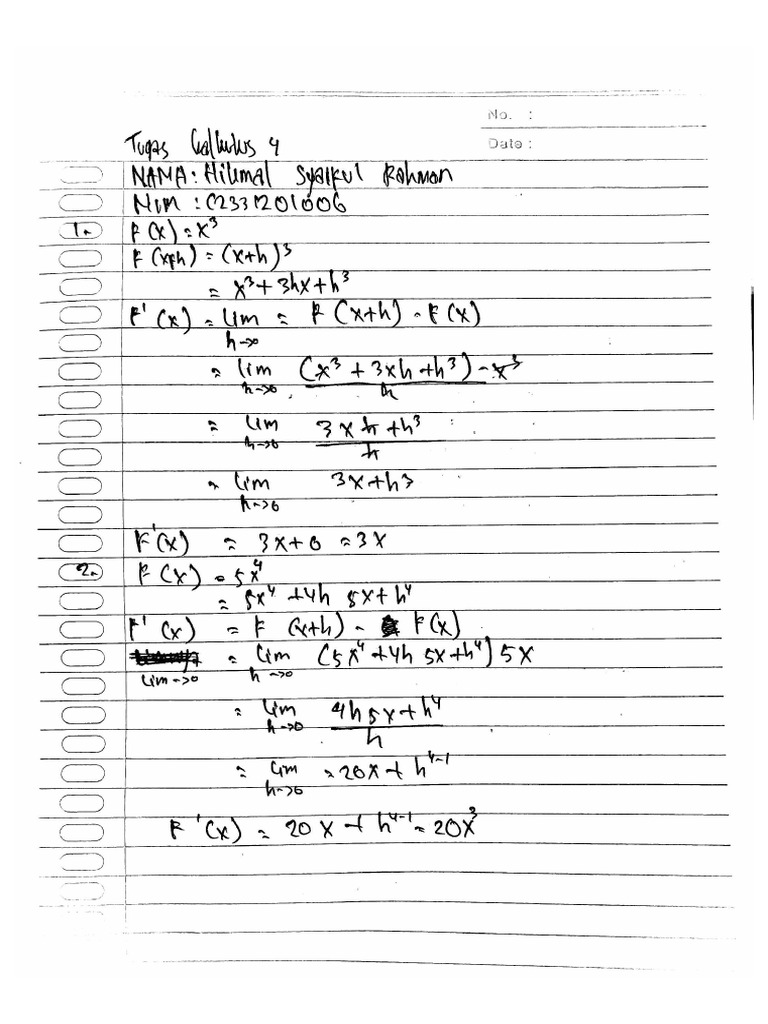 No. :
Date :
Tugas Kalkulus 4
NAMA: Hikmal Syaiful Rahman
NIM : C2331201006
1. F(x) = x³
F(x+h) = (x+h)³
= x³ + 3hx + h³
F'(x) = lim = F(x+h) - F(x)
h→0
= lim (x³ + 3xh + h³) - x³
h→0 h
= lim 3xh + h³
h→0 h
= lim 3x + h3
h→0
F'(x) = 3x + 0 = 3x
2. F(x) = 5x⁴
= 5x⁴ + 4h 5x + h⁴
F'(x) = F (x+h) - F(x)
= lim (5x⁴ + 4h 5x + h⁴) 5x
lim→0 h→0
= lim 4h5x + h⁴
h→0 h
= lim = 20x + h⁴⁻¹
h→0
F'(x) = 20x + h⁴⁻¹ = 20x³